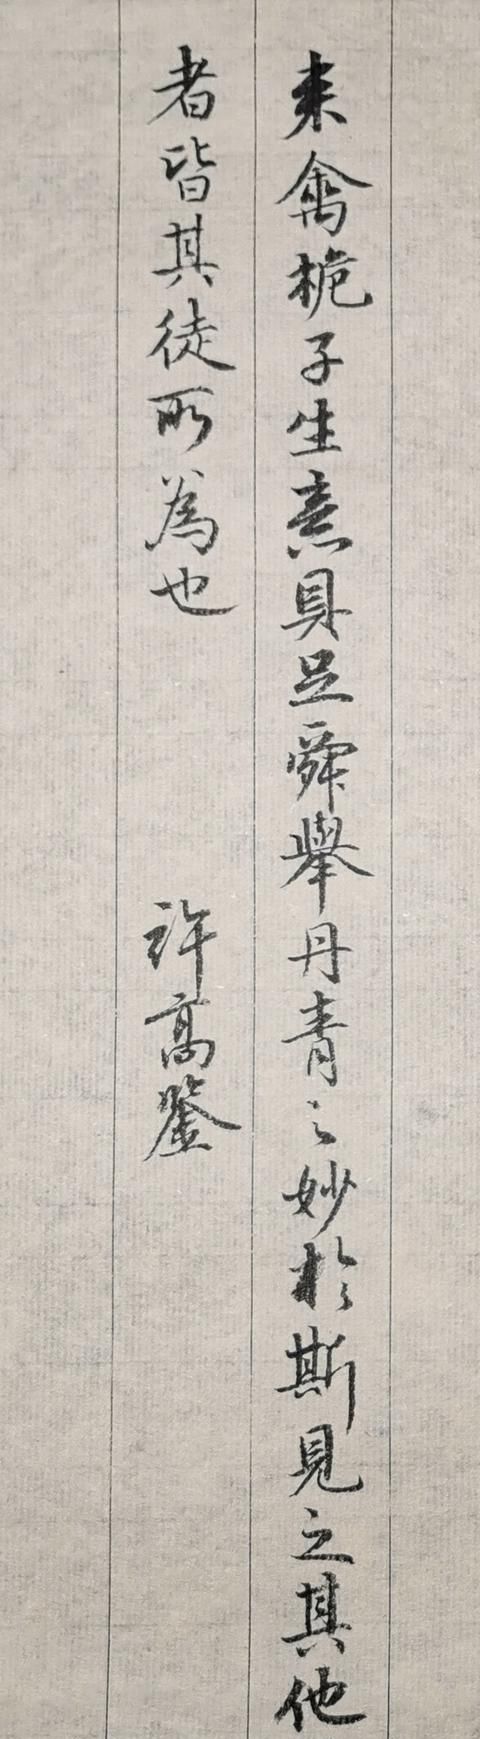 来禽梔子生意具足舜舉丹青之妙於斯見之其他
者皆其徒所為也
許高鑒